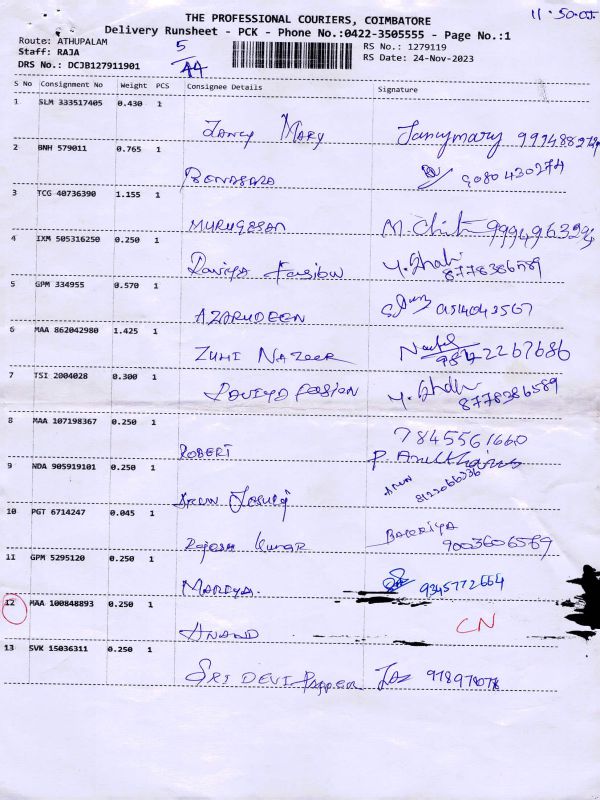 THE PROFESSIONAL COURIERS, COIMBATORE
11.50
Delivery Runsheet - PCK - Phone No.:0422-3505555 - Page No.:1
Route: ATHUPALAM 5 RS No.: 1279119
Staff: RAJA 44 RS Date: 24-Nov-2023
DRS No.: DCJB127911901
S No Consignment No Weight PCS Consignee Details Signature
1 SLM 333517405 0.430 1
Jancy Mary Jancymary
2 BNH 579011 0.765 1
BENASARA 9080430274
3 TCG 40736390 1.155 1
MURUGESAN
4 IXM 505316250 0.250 1
8778386589
5 GPM 334955 0.570 1
AZARUDEEN
6 MAA 862042980 1.425 1
ZUHI NAZEER
7 TSI 2004028 0.300 1
8778386589
8 MAA 107198367 0.250 1
ROBERT 7845561660
9 NDA 905919101 0.250 1
ARUN 8122066336
10 PGT 6714247 0.045 1
Rajesh Kumar 9003606589
11 GPM 5295120 0.250 1
MARIYA. 9345772664
12 MAA 100848893 0.250 1
ANAND CN
13 SVK 15036311 0.250 1
SRI DEVI PAPPER